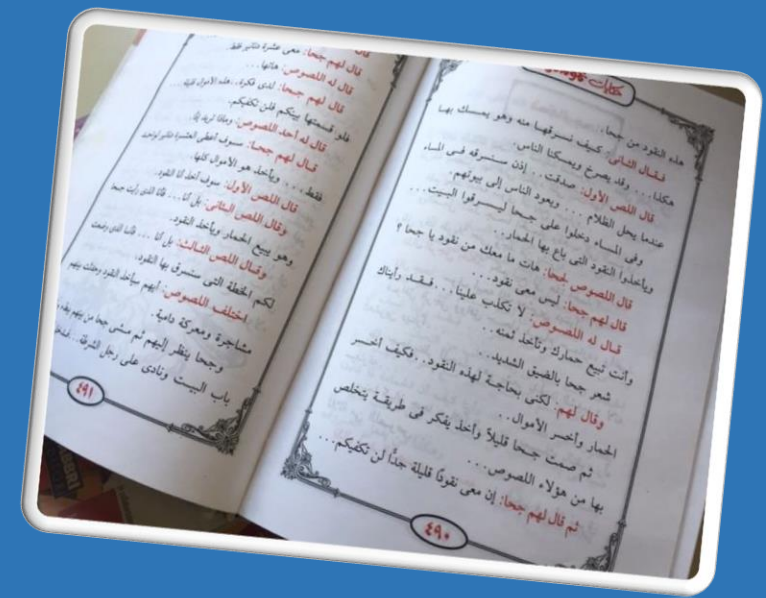 هذه النقود من جحا.
فقال الثانى: كيف نسرقها منه وهو يمسك بها
هكذا... وقد يصرخ ويمسكنا الناس.
قال اللص الأول: صدقت.. إذن سنسرقه فى المساء
عندما يحل الظلام ... ويعود الناس إلى بيوتهم.
وفى المساء دخلوا على جحا ليسرقوا البيت...
ويأخذوا النقود التى باع بها الحمار..
قال اللصوص لجحا: هات ما معك من نقود يا جحا ؟
قال لهم جحا: ليس معى نقود...
قال له اللصوص: لا تكذب علينا... فقد رأيناك
وأنت تبيع حمارك وتأخذ ثمنه..
شعر جحا بالضيق الشديد..
وقال لهم: لكنى بحاجة لهذه النقود.. فكيف أخسر
الحمار وأخسر الأموال..
ثم صمت جحا قليلاً وأخذ يفكر فى طريقة يتخلص
بها من هؤلاء اللصوص...
ثم قال لهم جحا: إن معى نقودًا قليلة جدًا لن تكفيكم...
٤٩٠
قال لهم جحا: معى عشرة دنانير فقط.
قال له اللصوص: هاتها...
قال لهم جحا: لدى فكرة.. هذه الأموال قليلة...
فلو قسمتها بينكم فلن تكفيكم.
قال له أحد اللصوص: وماذا تريد إذًا..
قال لهم جحا: سوف أعطى العشرة دنانير لواحد
فقط... ويأخذ هو الأموال كلها.
قال اللص الأول: سوف آخذ أنا النقود.
وقال اللص الثانى: بل أنا... فأنا الذى رأيت جحا
وهو يبيع الحمار ويأخذ النقود.
وقال اللص الثالث: بل أنا ... فأنا الذى وضعت
لكم الخطة التى سنسرق بها النقود.
اختلف اللصوص: أيهم سيأخذ النقود وحدثت بينهم
مشاجرة ومعركة دامية.
وجحا ينظر إليهم ثم مشى جحا من بينهم
باب البيت ونادى على رجل الشرطة...
٤٩١